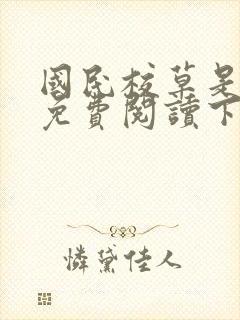 國民校草是
免費閱讀下
憐黛佳人